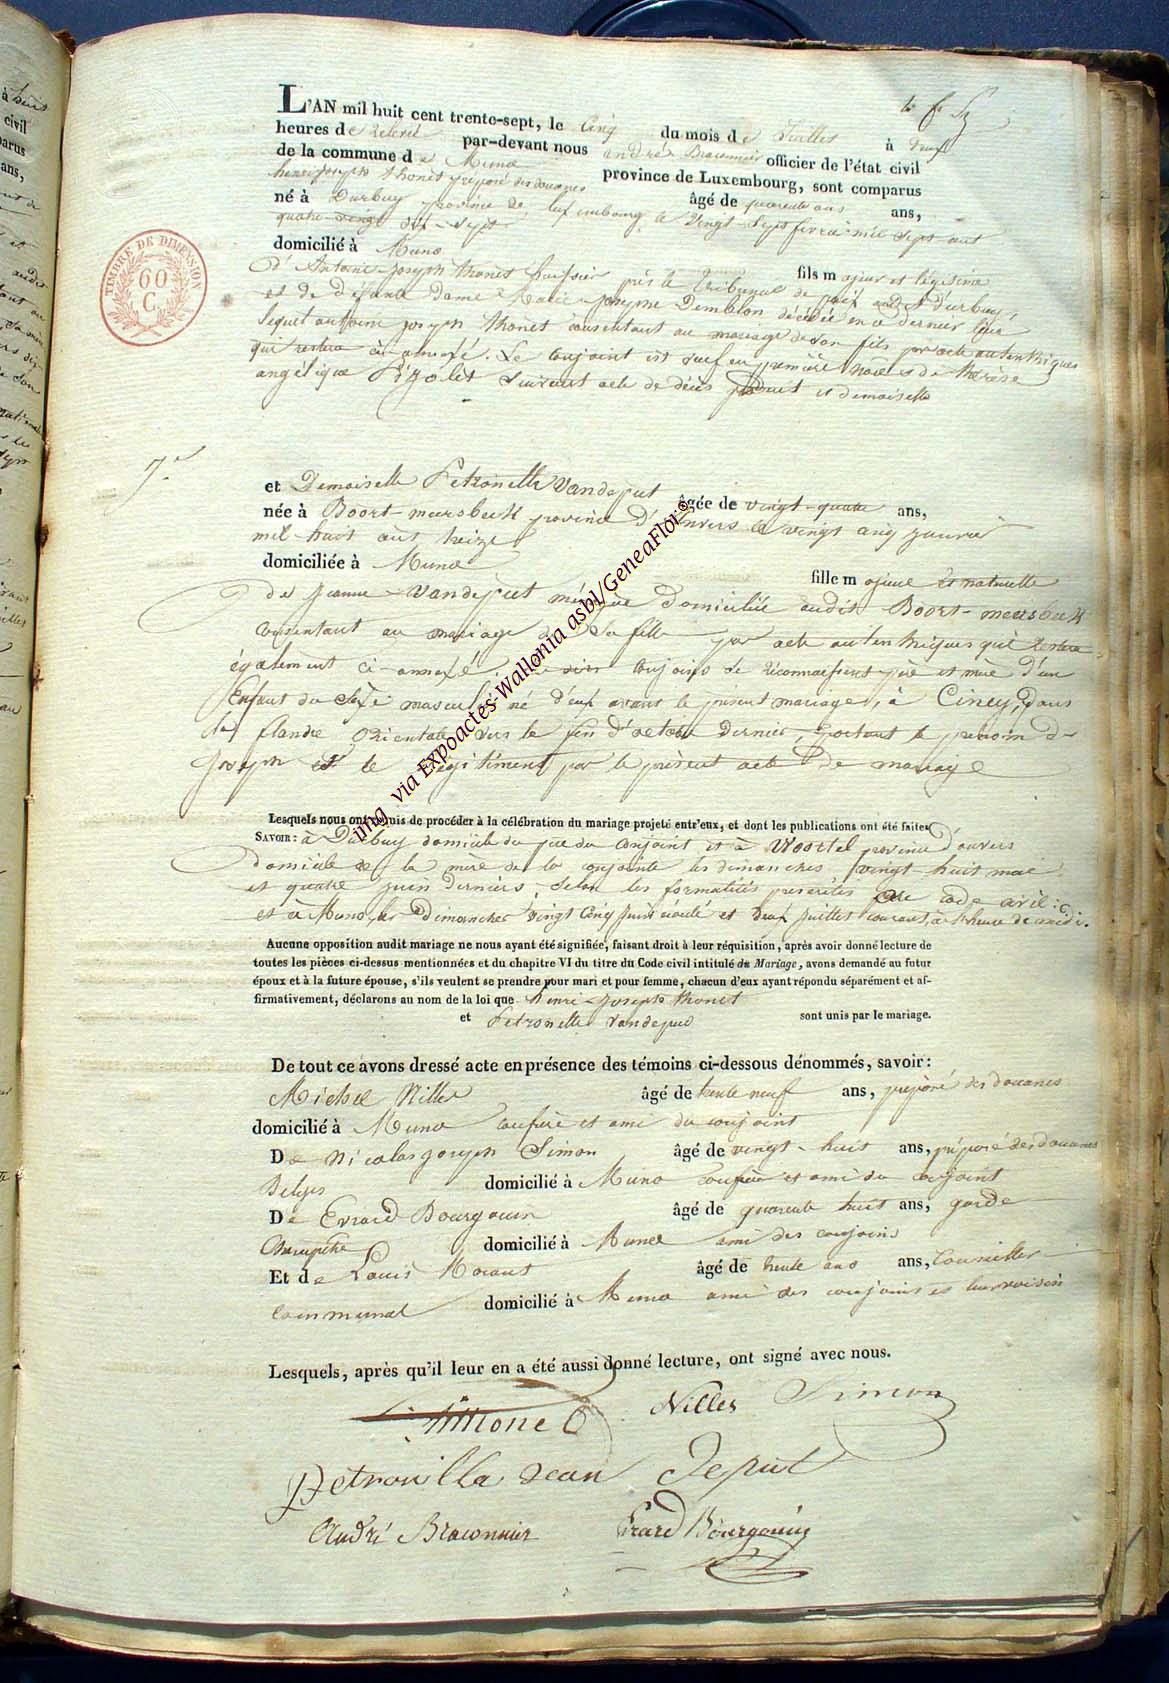 L'AN mil huit cent trente-sept, le Cinq du mois de Juillet à neuf
heures de relevée par-devant nous andré Braconnier officier de l'état civil
de la commune de Muno province de Luxembourg, sont comparus
henri joseph thonet préposé des douanes âgé de quarante ans ans,
né à Durbuy province de Luxembourg le vingt-sept fevrier mil sept cent
quatre-vingt dix-sept
domicilié à Muno fils majeur et légitime
d'Antoine-Joseph thonet huissier près le tribunal de paix de Durbuy,
et de Défunte Dame Marie-josephe Demblon décédée en ce dernier lieu
lequel antoine joseph thonet consentant au mariage de son fils par acte autenthiques
qui restera ci-annexé. Le conjoint est veuf en première noces de thérèse
angélique suivant acte de décès produit et demoiselle
7e
et Demoiselle Petronelle Vandeput âgée de vingt-quatre ans,
née à Boort-meersbeek province d'anvers le vingt cinq janvier
mil-huit cent treize
domiciliée à Muno fille majeure et naturelle
de jeanne Vandeput domiciliée audit Boort-meersbeek
consentant au mariage de sa fille par acte autenthiques qui restera
également ci-annexé, conjoints se reconnaissent père et mère d'un
Enfant du sexe masculin né d'eux avant le présent mariage, à Ciney, dans
la flandre Orientale vers le fin d'octobre Dernier, portant le prenom de
Joseph et le légitiment par le présent acte de mariage
Lesquels nous ont requis de procéder à la célébration du mariage projeté entr'eux, et dont les publications ont été faites
SAVOIR : à Durbuy domicile du père du conjoint et à Woortel province d'anvers
domicile de la mère de la conjointe les dimanches vingt-huit mai
et quatre juin derniers, selon les formalités prescrites par code civil :
et à Muno, les Dimanches vingt cinq juin écoulé et deux juillet courant, à l'heure de midi.
Aucune opposition audit mariage ne nous ayant été signifiée, faisant droit à leur réquisition, après avoir donné lecture de
toutes les pièces ci-dessus mentionnées et du chapitre VI du titre du Code civil intitulé du Mariage, avons demandé au futur
époux et à la future épouse, s'ils veulent se prendre pour mari et pour femme, chacun d'eux ayant répondu séparément et af-
firmativement, déclarons au nom de la loi que henri-joseph thonet
et Petronelle Vandeput sont unis par le mariage.
De tout ce avons dressé acte en présence des témoins ci-dessous dénommés, savoir :
Michel Nilles âgé de trente neuf ans, préposé des douanes
domicilié à Muno confrère et ami du conjoint
De Nicolas joseph Simon âgé de vingt-huit ans, préposé des douanes
Belges domicilié à Muno confrère et ami du conjoint
De Evrard Bourgouin âgé de quarante huit ans, garde
Champêtre domicilié à Muno ami des conjoins
Et de Louis âgé de trente ans ans, Conseiller
communal domicilié à Muno ami des conjoints et leur voisin
Lesquels, après qu'il leur en a été aussi donné lecture, ont signé avec nous.
thonet Nilles Simon
Petronella Deput
André Braconnier Erard Bourgouin
TIMBRE DE DIMENSION
60
C.
img via Expoactes-Wallonia asbl/GeneaFlore